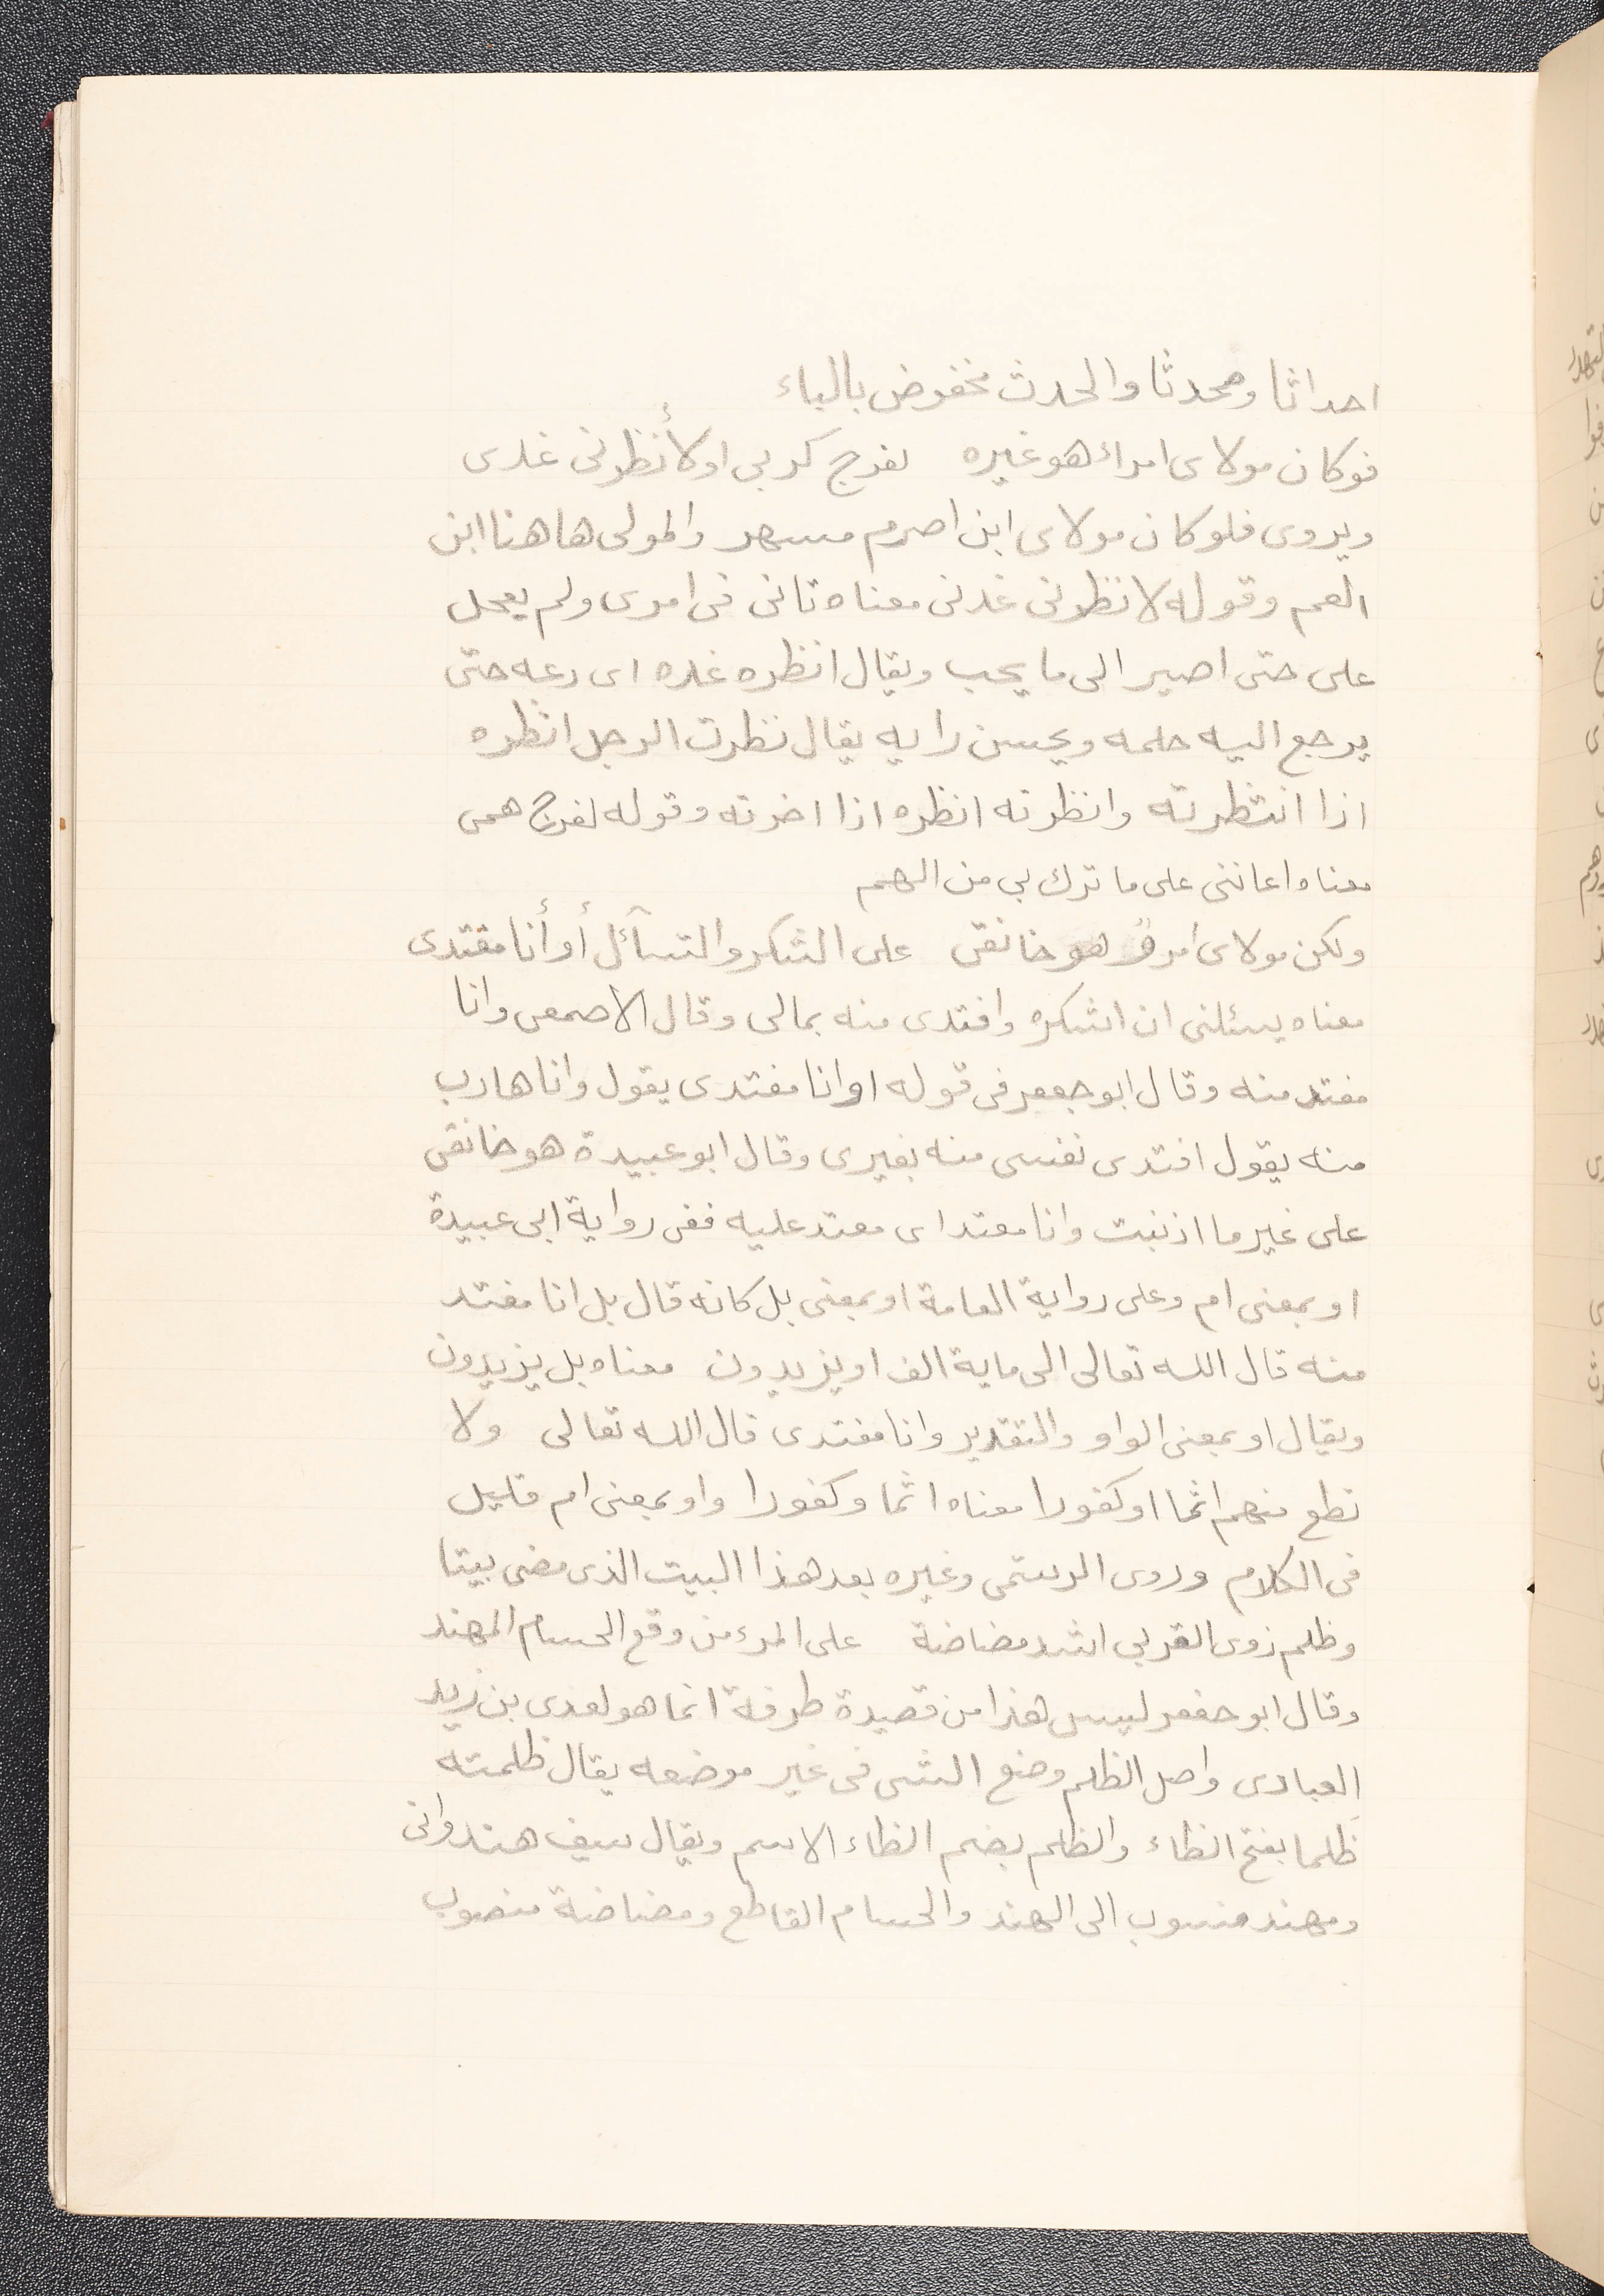 احداثا ومحدثا والحدث مخفوض بالباء
فوكان مولاى امراء هو غيره لفرج كربى اولأنظرنى غدى
ويروى فلوكان مولاى ابن اصرم مسهر والمولى هاهنا ابن
العم وقوله لانظرنى غدنى معناه تانى فى امرى ولم يعجل
على حتى اصير الى ما يحب ويقال انظره غده اى دعه حتى
يرجع اليه حلمه ويحسن رايه يقال نظرت الرجل انظره
اذا انتظرته وانظرته انظره اذا اخرته وقوله لفرج همى
معناه اعاننى على ما ترك بى من الهم
ولكن مولاى امرؤ هو خانقى على الشكر والتسآئل أو أنا مفتدى
معناه يسئلنى ان اشكره وافتدى منه بمالى وقال الاصمعى وانا
مفتد منه وقال ابو جعفر فى قوله اوانا مفتدى يقول وانا هارب
منه يقول افتدى نفسى منه بغيرى وقال ابو عبيدة هو خانقى
على غير ما اذنبت وانا معتد اى معتد عليه ففى رواية ابى عبيدة
او بمعنى ام وعلى رواية العامة او بمعنى بل كانه قال بل انا مفتد
منه قال الله تعالى الى ماية الف او يزيدون معناه بل يزيدون
ويقال او بمعنى الواو والتقدير وانا مفتدى قال الله تعالى ولا
تطع منهم اثما او كفورا معناه اثما وكفورا واو بمعنى ام قليل
فى الكلام وروى الرستمى وغيره بعد هذا البيت الذى مضى بيتا
وظلم ذوى القربى اشد مضاضة على المرء من وقع الحسام المهند
وقال ابو جعفر ليس هذا من قصيدة طرفة انما هو لعدى بن زيد
العبادى واصل الظلم وضع الشى فى غير موضعه يقال ظلمته
ظَلما بفتح الظاء والظلم بضم الظاء الاسم ويقال سيف هندوانى
ومهند منسوب الى الهند والحسام القاطع ومضاضة منصوب